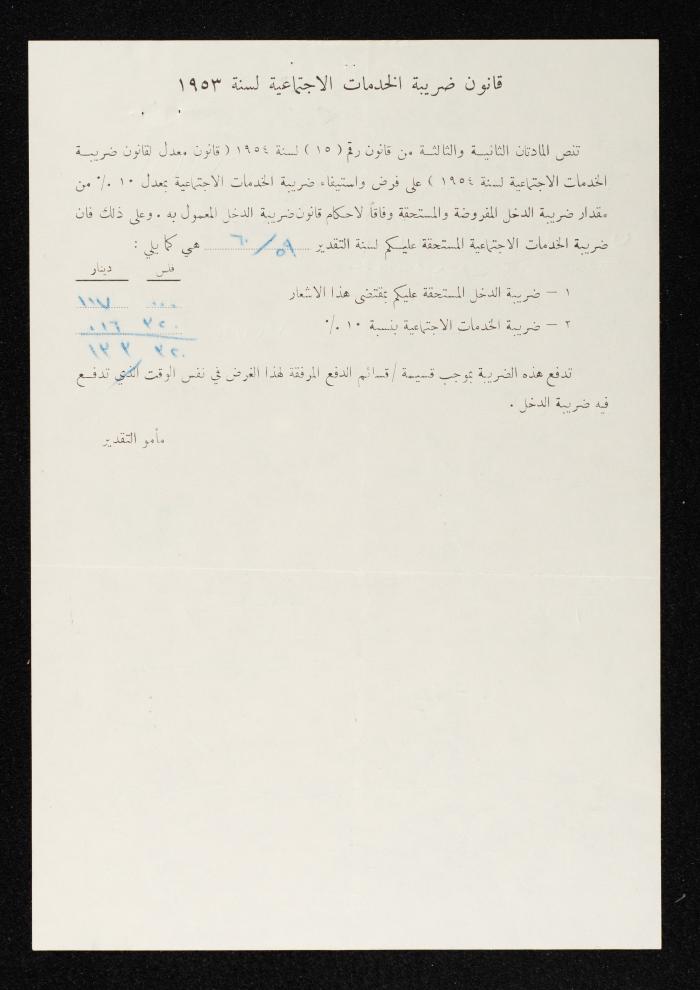 قانون ضريبة الخدمات الاجتماعية لسنة ١٩٥٣
تنص المادتان الثانيـة والثالثـة من قانون رقم ( ١٥ ) لسنة ١٩٥٤ ( قانون معدل لقانون ضريبـة
الخدمات الاجتماعية لسنة ١٩٥٤ ) على فرض واستيفاء ضريبة الخدمات الاجتماعية بمعدل ١٠ ./° من
مقدار ضريبة الدخل المفروضة والمستحقة وفاقاً لاحكام قانون ضريبة الدخل المعمول به . وعلى ذلك فان
ضريبة الخدمات الاجتماعية المستحقة عليـكم لسنة التقدير ٥٩/٦٠ هي كما يلي :
فلس دينار
١ – ضريبة الدخل المستحقة عليكم بمقتضى هذا الاشعار ٠٠٠ ١١٧
٢ – ضريبة الخدمات الاجتماعية بنسبة ١٠ ./° ٣٢٠ ٠١٦
٣٢٠ ١٣٣
تدفع هذه الضريبة بموجب قسيمة / قسائم الدفع المرفقة لهذا الغرض في نفس الوقت الذي تدفـع
فيه ضريبة الدخل .
مأمو التقدير